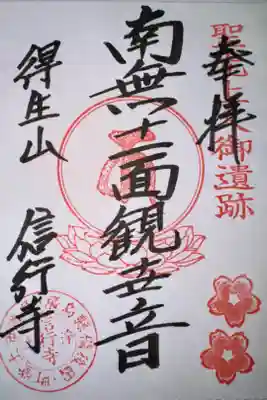 奉拝
聖光上人御遺跡
南無十一面観世音
得生山
信行寺